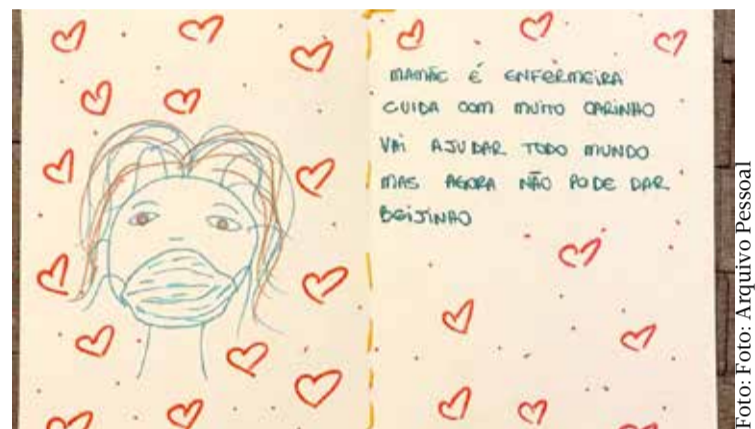 MAMÃE É ENFERMEIRA
CUIDA COM MUITO CARINHO
VAI AJUDAR TODO MUNDO
MAS AGORA NÃO PODE DAR
BEIJINHO
Foto: Foto: Arquivo Pessoal